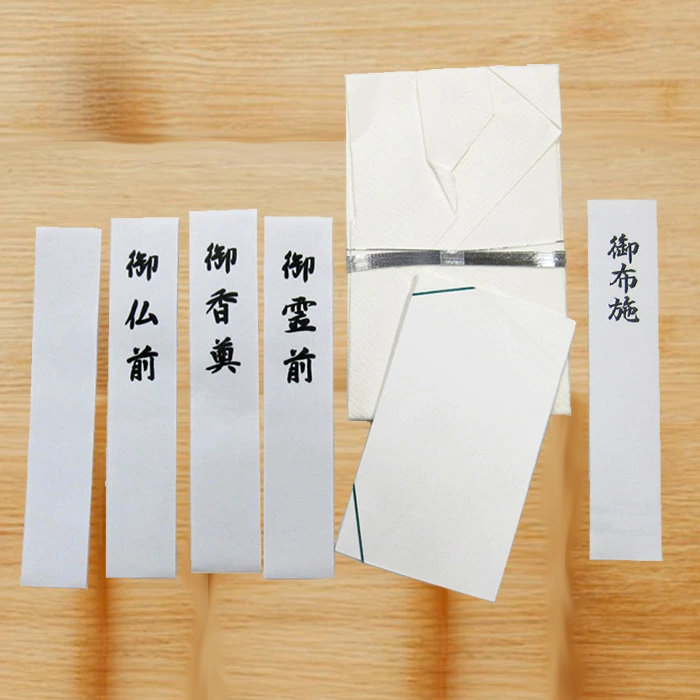 御仏前
御香奠
御霊前
御布施